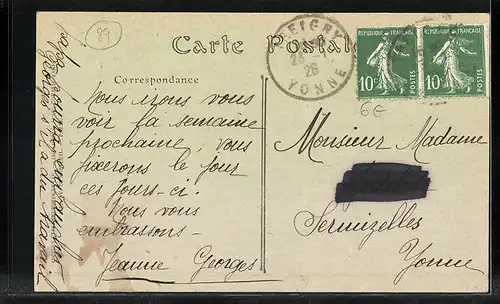 89
Carte Postale
REIGNY
26
YONNE
REPUBLIQUE FRANCAISE
10c
POSTES
REPUBLIQUE FRANCAISE
10c
POSTES
6E
Correspondance
Nous irons vous
voir la semaine
prochaine, vous
fixerons le jour
ces jours-ci.
Nous vous
embrassons-
Jeanne Georges
Monsieur Madame
Sermizelles
Yonne
Georges a du travail